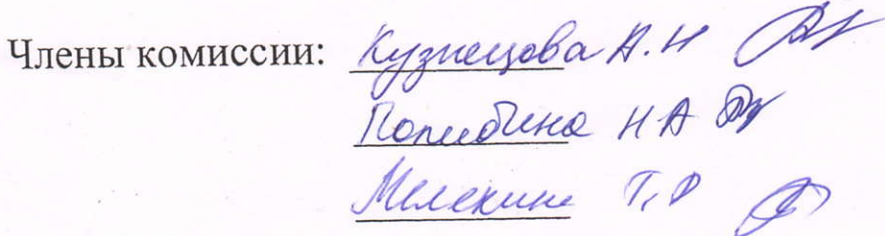 Члены комиссии: Кузнецова А.Н
Полибина Н А
Мелекина Т.Р